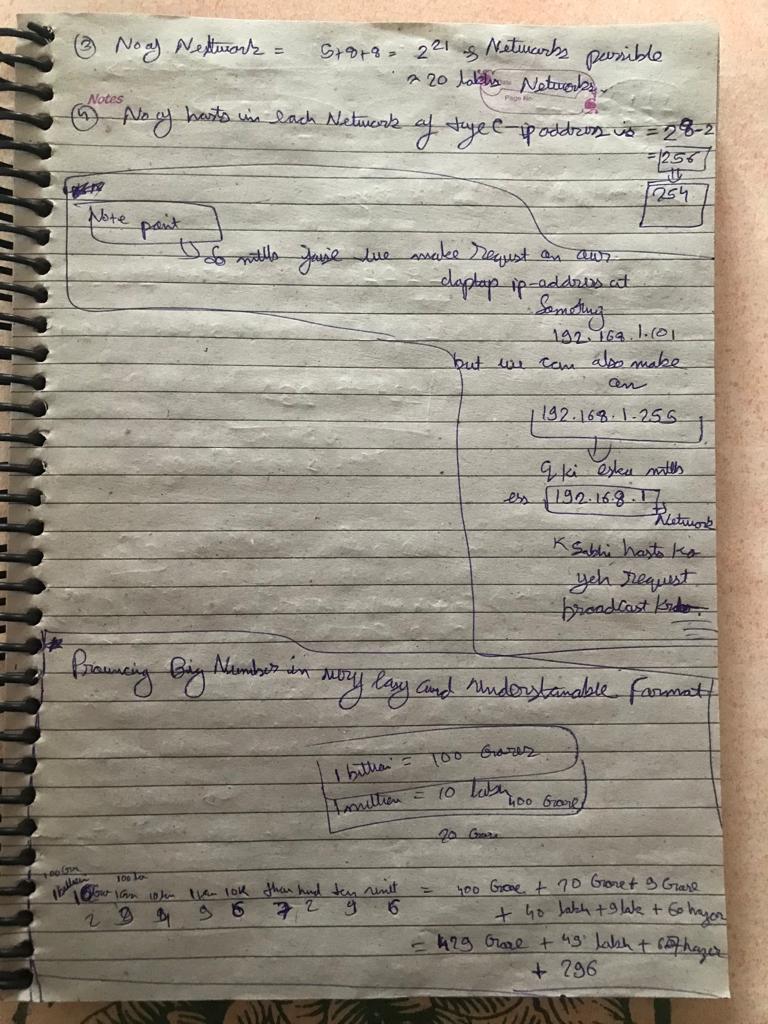 ③ No of Network = 5+8+8 = 2²¹ Networks possible
≈ 20 lakhs Networks.
Notes
Page No
④ No of hosts in each Network of type C-ip address is = 2⁸-2
= 256
254
Note point
So mtlb jaise we make request on our
laptop ip-address at
192.168.1.101
but we can also make
on
192.168.1.255
ki eska mtlb
ess 192.168.1
Network
K Sabhi hosts ko
yeh request
broadcast krdo
* Big Number in very easy and understanable Format
1 billion = 100 Crores
1 million = 10 lakh
400 Crore
20 Crore
1 billion 10Cror 1Crore 10 10K thou hund ten unit
2 9 4 9 6 7 2 9 6
= 400 Crore + 20 Crore + 9 Crore
+ 40 lakh + 9 lak + 60 hazar
= 429 Crore + 49 lakh + 67 hazar
+ 296